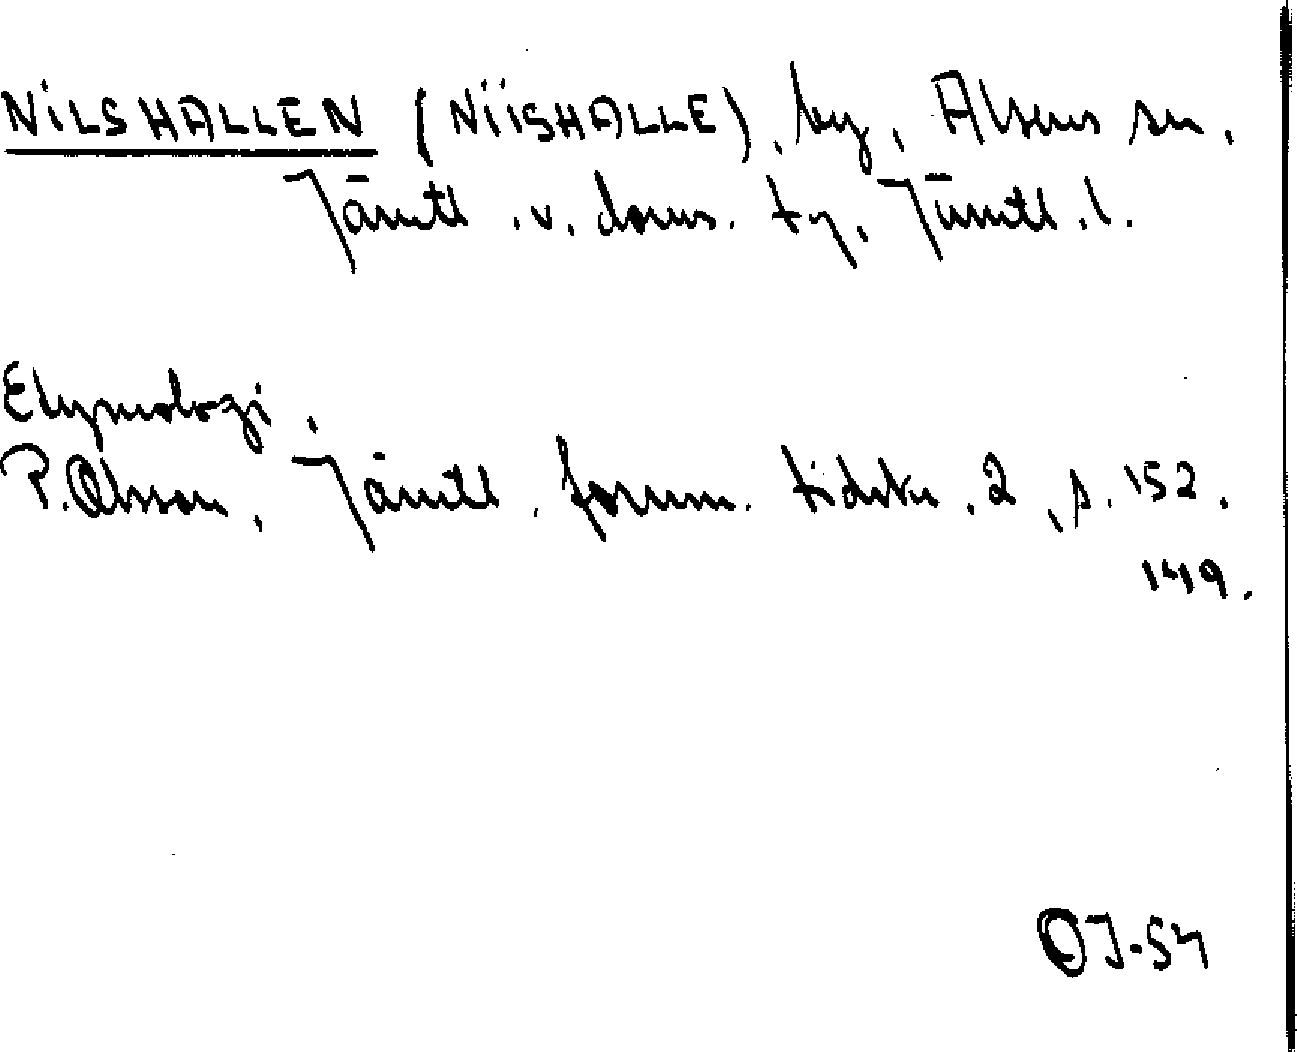 NILSHALLEN (NIISHALLE), by, Alsens sn,
Jämtl. v. doms. tg, Jämtl. l.
Etymologi.
P. Olsson, Jämtl. fornm. tidskr. 2, s. 152.
149.
OJ-54